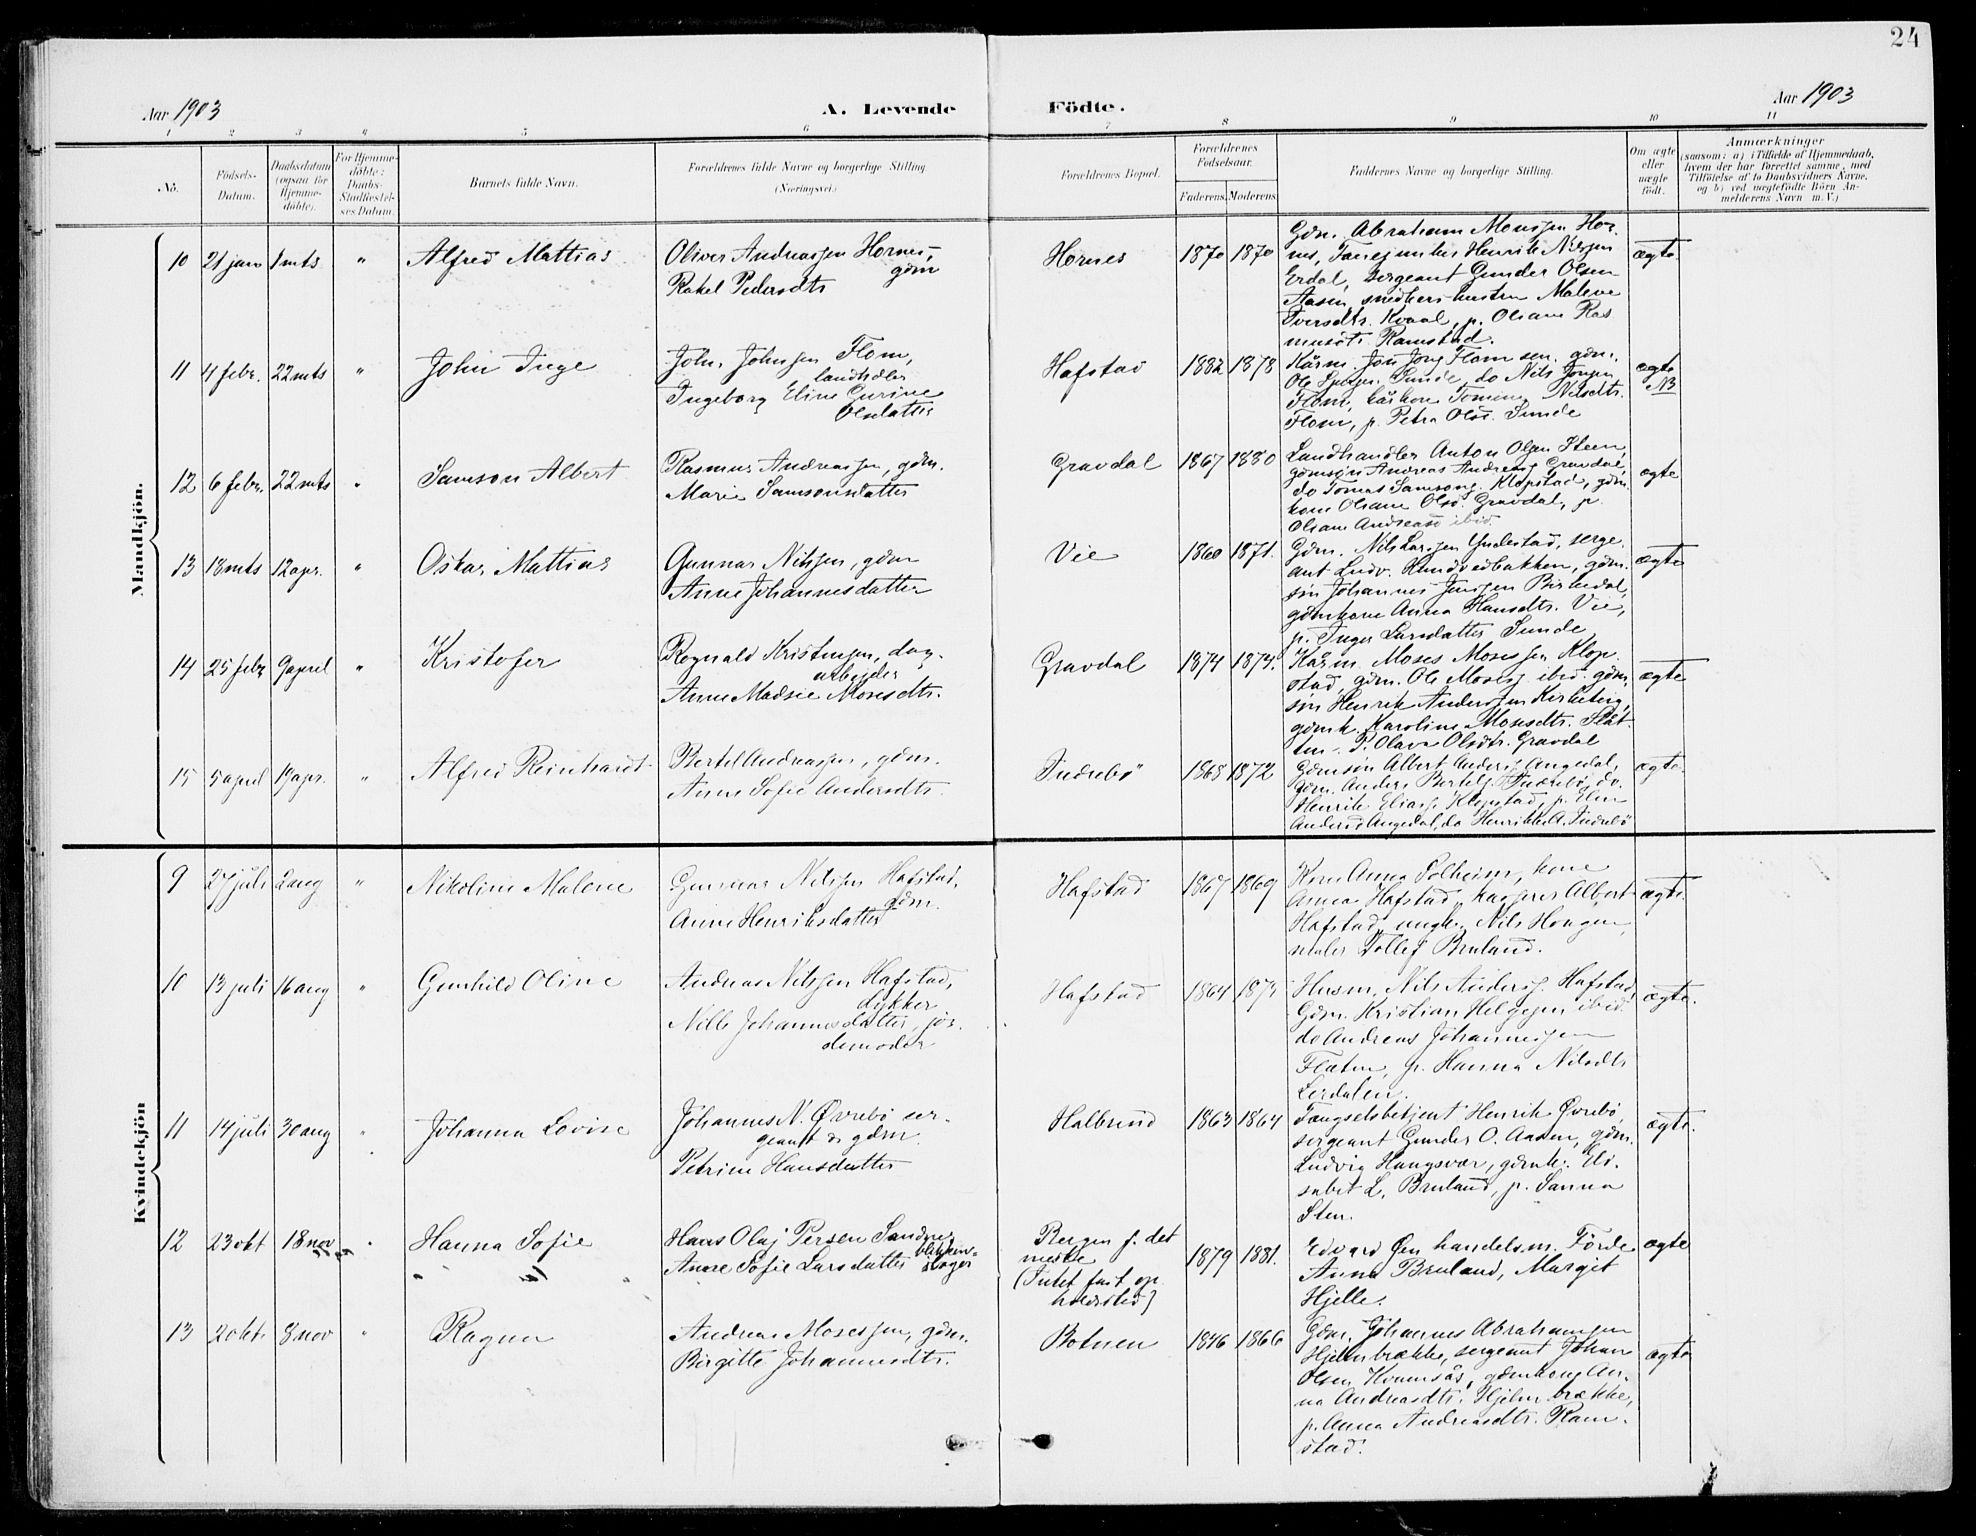 24
Aar 1903
A. Levende
Födte.
Aar 1903
1 2 3 4 5 6 7 8 9 10 11
No.
Födsels-
Datum.
Daabsdatum
(ogsaa for
Hjemme-
döbte).
For Hjemme-
döbte:
Daabs-
Stadfæstel-
ses Datum.
Barnets fulde Navn.
Forældrenes fulde Navne og borgerlige Stilling
(Næringsvei.)
Forældrenes Bopæl.
Forældrenes
Födselsaar.
Faderens. Moderens
Faddernes Navne og borgerlige Stilling.
Om ægte
eller
uægte
födt.
Anmærkninger
(saasom: a) i Tilfælde af Hjemmedaab,
hvem der har forrettet samme, med
Tilföielse af to Daabsvidners Navne,
og b) ved uægtefödte Börn An-
melderens Navn m. V.)
Mandkjön.
10 21 jan 1 mts " Alfred Mattias
Oliver Andreassen Hornes,
gdm
Rakel Pedersdtr
Hornes 1870 1870
Gdm. Abraham Monssen Hor-
nes, Henrik Nilssen
Erdal, sergeant Gunder Olsen
Aasen, snedkers hustru Malene
Iversdtr. Kvaal, p. Olsane Ras
musdtr. Ramstad.
ægte
11 4 febr. 22 mts " John Inge
John Johnsen Flom,
landhdler
Ingeborg Eline Gurine
Olsdatter
Hafstad 1882 1878
Kårm. Jon Jons Flom sen. gdm.
Ole Sunde, do Nils Jonsen
Flom, kårkone Nilsdtr.
Flom, p. Petra Olsd. Sunde
ægte
NB
12 6 febr. 22 mts " Samson Albert
Rasmus Andreassen, gdm.
Marie Samsonsdatter
Gravdal 1867 1880
Landhandler Anton Olsen Steen,
gdmsøn Andreas Andreass. Gravdal,
do Tomas Samsons. Klopstad, gdm.
kone Olsane Olsd. Gravdal, p.
Olsane Andreasd ibid.
ægte
13 18 mts 12 apr. " Oskar Mattias
Gunnar Nilssen, gdm
Anne Johannesdatter
Vie 1860 1871.
Gdm. Nils Larssen Yndestad, serge
ant Ludv. Rundvedbakken, gdm.
søn Johannes Jenssen Birkedal,
gdmkone Anna Hansdtr. Vie,
p. Inger Larsdatter Sunde
ægte
14 25 febr 9 april " Kristofer
Rognald Kristensen, dag-
arbeider
Anne Madsie Mosesdtr.
Gravdal 1874 1874.
Kårm. Moses Mosessen Klop
stad, gdm. Ole Moses. ibid. gdm.
søn Henrik Anderssen Kirketeig,
gdmk. Karoline Mosesdtr. Flåt-
ten. P. Olava Olsdtr. Gravdal
ægte
15 5 april 19 apr. " Alfred Reinhardt
Bertel Andreassen, gdm.
Anne Sofie Andersdtr.
Indrebø 1868 1872
Gdmsøn Albert Anders. Angedal,
gdm. Anders Bertels. Indrebø, do.
Henrik Elias. Klopstad, p. Elen
Andersd Angedal, do Henrikke A. Indrebø
ægte.
Kvindekjön
9 27 juli 2 aug " Nikoline Malene
Gunnar Nilssen Hafstad,
gdm.
Anne Henriksdatter
Hafstad 1867 1869
Kone Anna Solheim, kone
Anna Hafstad, Albert
Hafstad, ungk. Nils Hougen,
maler Tollef Bruland.
ægte.
10 13 juli 16 aug " Gunhild Oline
Andreas Nilssen Hafstad,
dykker
Nille Johannesdatter, jor-
demoder
Hafstad 1864 1873
Husm. Nils Anders. Hafstad,
Gdm. Kristian Helgesen ibid.
do Andreas Johannessen
Flaten, p. Hanna Nilsdtr
Lerdalen.
ægte.
11 14 juli 30 aug " Johanna Lovise
Johannes N. Øvrebø ser-
geant & gdm.
Petrine Hansdatter
Halbrend 1863 1864
Fængselsbetjent Henrik Øvrebø
sergeant Gunder O. Aasen, gdm.
Ludvig Hangsvær, gdmk. Eli-
sabet L. Bruland, p. Sanna
Sten.
ægte.
12 23 okt 18 nov " Hanna Sofie
Hans Olaj Persen Sandnes
blikken-
Anne Sofie Larsdatter slager
Bergen f. det
meste
(Intet fast op
holdssted)
1879 1881.
Edvard Øen handelsm. Förde
Anna Bruland, Margit
Hjelle.
ægte
13 2 okt. 8 nov " Ragna
Andreas Mosessen, gdm.
Birgitte Johannesdtr.
Botnen 1846 1866
Gdm. Johannes Abrahamsen
Hjelmbrække, sergeant Johan
Olsen Kvamsås, gdmkone An-
na Andreasdtr. Hjelmbrække,
p. Anna Andreasdtr. Ram-
stad.
ægte